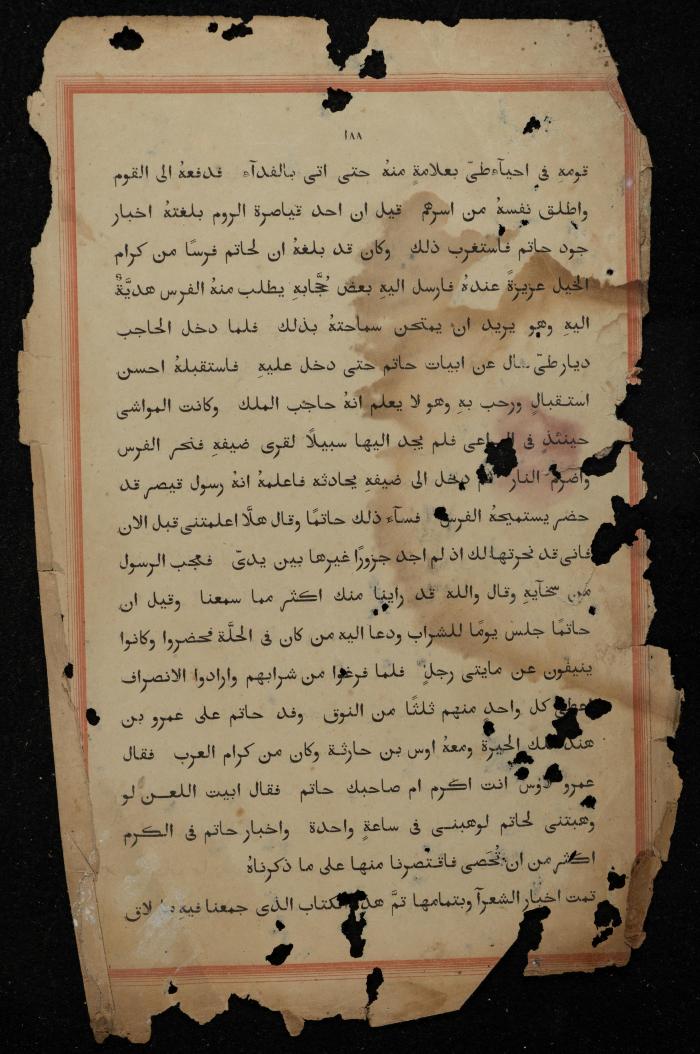 ١٨٨
قومهِ في احيآءطيّ بعلامةٍ منهُ حتى اتى بالفدآء فدفعهُ الى القوم
واطلق نفسهُ من اسرهم قيل ان احد قياصرة الروم بلغتهُ اخبار
جود حاتم فاستغرب ذلك وكان قد بلغهُ ان لحاتم فرسًا من كرام
الخيل عزيزةً عندهُ فارسل اليهِ بعض حُجَّابهِ يطلب منهُ الفرس هديَّةً
اليهِ وهو يريد ان يمتحن سماحتهُ بذلك فلما دخل الحاجب
ديار طيّ عن ابيات حاتم حتى دخل عليهِ فاستقبلهُ احسن
استقبالٍ ورحب بهِ وهو لا يعلم انهُ حاجب الملك وكانت المواشى
حينئذٍ في فلم يجد اليها سبيلًا لقرى ضيفهِ فنحر الفرس
واضرم النار دخل الى ضيفهِ يحادثه فاعلمهُ انهُ رسول قيصر قد
حضر يستميحهُ الفرس فسآء ذلك حاتمًا وقال هلَّا اعلمتنى قبل الان
فانى قد نحرتها لك اذ لم اجد جزورًا غيرها بين يدىّ فعجب الرسول
من سخآيهِ وقال والله قد راينا منك اكثر مما سمعنا وقيل ان
حاتمًا جلس يومًا للشراب ودعا اليه من كان في الحلَّة فحضروا وكانوا
ينيفون عن مايتى رجلٍ فلما فرغوا من شرابهم وارادوا الانصراف
كل واحدٍ منهم ثلثًا من النوق وفد حاتم على عمرو بن
هند الحيرة ومعهُ اوس بن حارثة وكان من كرام العرب فقال
عمرو لاوس انت اكرم ام صاحبك حاتم فقال ابيت اللعن لو
وهبتنى لحاتم لوهبنى في ساعةٍ واحدة واخبار حاتم في الكرم
اكثر من ان تُحصَى فاقتصرنا منها على ما ذكرناهُ
تمت اخبار الشعرآ وبتمامها تمَّ الكتاب الذى جمعنا فيهِ لاق